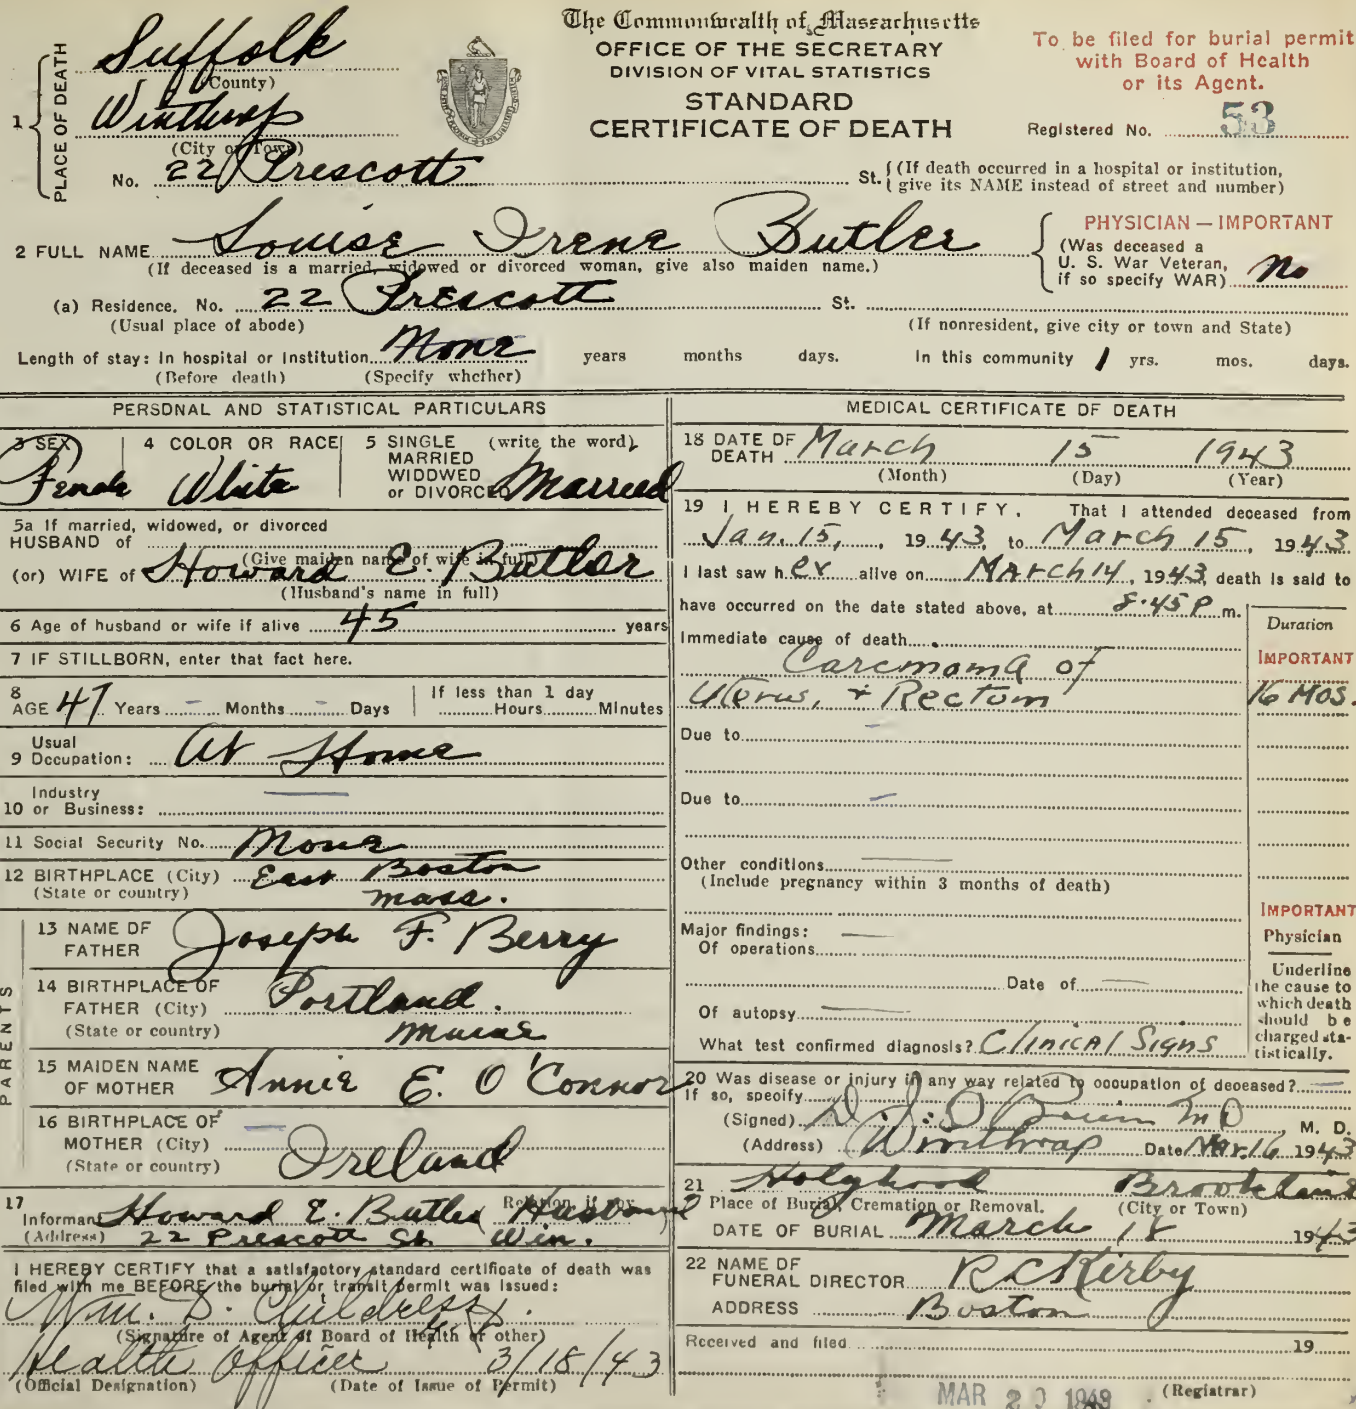 The Commonwealth of Massachusetts
OFFICE OF THE SECRETARY
DIVISION OF VITAL STATISTICS
STANDARD
CERTIFICATE OF DEATH
To be filed for burial permit
with Board of Health
or its Agent.
Registered No. 53
1 PLACE OF DEATH
Suffolk
(County)
Winthrop
(City or Town)
No. 22 Prescott St. (If death occurred in a hospital or institution,
give its NAME instead of street and number)
2 FULL NAME Louise Irene Butler
(If deceased is a married, widowed or divorced woman, give also maiden name.)
PHYSICIAN — IMPORTANT
(Was deceased a
U. S. War Veteran,
if so specify WAR) No
(a) Residence. No. 22 Prescott St.
(Usual place of abode) (If nonresident, give city or town and State)
Length of stay: In hospital or Institution None years months days. In this community 1 yrs. mos. days.
(Before death) (Specify whether)
PERSONAL AND STATISTICAL PARTICULARS
3 SEX 4 COLOR OR RACE 5 SINGLE (write the word)
MARRIED
WIDOWED
or DIVORCED
Female White Married
5a If married, widowed, or divorced
HUSBAND of
(Give maiden name of wife in full)
(or) WIFE of Howard E. Butler
(Husband's name in full)
6 Age of husband or wife if alive 45 years
7 IF STILLBORN, enter that fact here.
8 AGE 47 Years - Months - Days If less than 1 day
Hours Minutes
9 Usual
Occupation: At Home
10 Industry
or Business: —
11 Social Security No. None
12 BIRTHPLACE (City) East Boston
(State or country) Mass.
PARENTS
13 NAME OF
FATHER Joseph F. Berry
14 BIRTHPLACE OF
FATHER (City) Portland.
(State or country) Maine
15 MAIDEN NAME
OF MOTHER Annie E. O'Connor
16 BIRTHPLACE OF
MOTHER (City) —
(State or country) Ireland
17 Informant Howard E. Butler Relation, if any Husband
(Address) 22 Prescott St. Win.
I HEREBY CERTIFY that a satisfactory standard certificate of death was
filed with me BEFORE the burial or transit permit was issued:
Wm. D. Childress
(Signature of Agent of Board of Health or other)
Health Officer 3/18/43
(Official Designation) (Date of Issue of Permit)
MEDICAL CERTIFICATE OF DEATH
18 DATE OF
DEATH March 15 1943
(Month) (Day) (Year)
19 I HEREBY CERTIFY, That I attended deceased from
Jan. 15, 1943, to March 15, 1943
I last saw her alive on March 14, 1943, death is said to
have occurred on the date stated above, at 8:45 P. m.
Duration
Immediate cause of death
IMPORTANT
Carcinoma of
Uterus, + Rectum 16 MOS.
Due to -
Due to -
Other conditions —
(Include pregnancy within 3 months of death)
Major findings: —
Of operations
Date of —
Of autopsy —
What test confirmed diagnosis? Clinical Signs
IMPORTANT
Physician
Underline
the cause to
which death
should be
charged sta-
tistically.
20 Was disease or injury in any way related to occupation of deceased? —
If so, specify
(Signed) MD, M. D.
(Address) Winthrop Date Mar. 16 1943
21 Holyhood Brookline
Place of Burial, Cremation or Removal. (City or Town)
DATE OF BURIAL March 18 1943
22 NAME OF
FUNERAL DIRECTOR R C Kirby
ADDRESS Boston
Received and filed 19
MAR 20 1943 (Registrar)